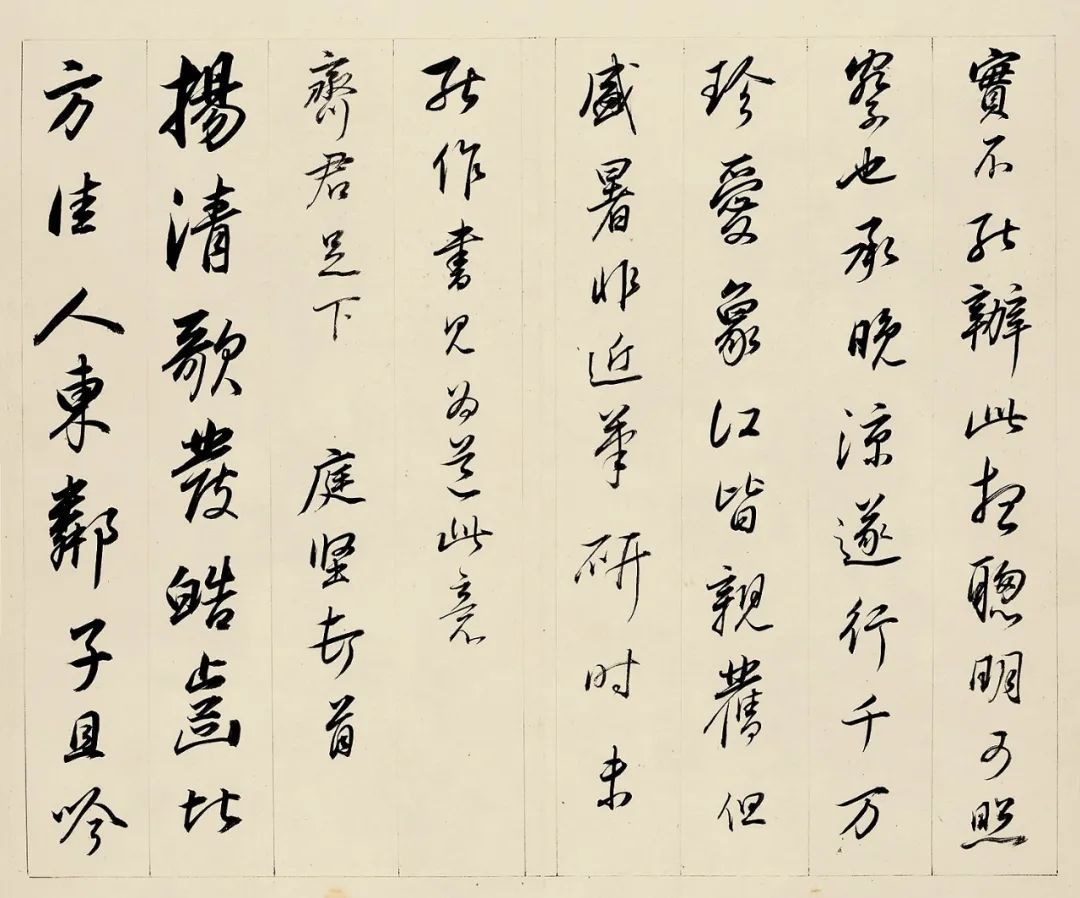 實不能辦此想聰明可照
察也承晚涼遂行千万
珍愛象江皆親舊但
盛暑非近筆研时未
能作書見為道此意
齋君足下 庭坚頓首
揚清歌發皓齒北
方佳人東鄰子且吟